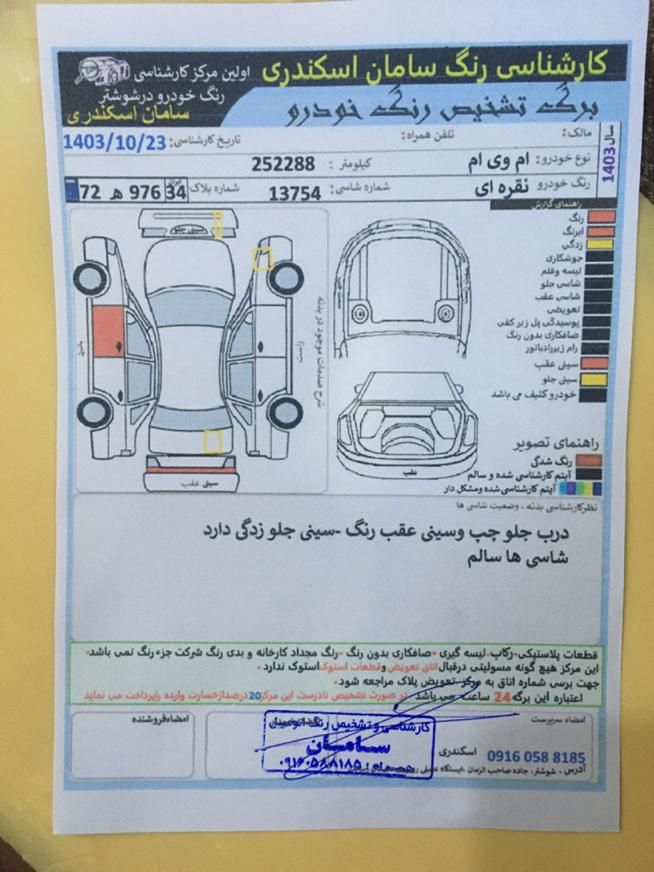 کارشناسی رنگ سامان اسکندری
اولین مرکز کارشناسی
رنگ خودرو درشوشتر
سامان اسکندری
برگه تشخیص رنگ خودرو
سال 1403
مالک:
تلفن همراه:
تاریخ کارشناسی: 1403/10/23
نوع خودرو: ام وی ام
کیلومتر : 252288
رنگ خودرو نقره ای
شماره شاسی: 13754
شماره پلاک
34 976 هـ 72
راهنمای گزارش
رنگ
آبرنگ
زدگی
جوشکاری
لیسه وقلم
شاسی جلو
شاسی عقب
تعویضی
پوسیدگی پل زیر کفی
صافکاری بدون رنگ
رام زیررادیاتور
سینی عقب
سینی جلو
خودرو کثیف می باشد
سینی جلو
شرح صدمات موجود در بدنه
سینی عقب
عقب
راهنمای تصویر
رنگ شدگی
آیتم کارشناسی شده و سالم
آیتم کارشناسی شده ومشکل دار
نظرکارشناسی بدنه - وضعیت شاسی ها
درب جلو چپ وسینی عقب رنگ -سینی جلو زدگی دارد
شاسی ها سالم
قطعات پلاستیکی- رکاب- لیسه گیری - صافکاری بدون رنگ - رنگ مجداد کارخانه و بدی رنگ شرکت جزء رنگ نمی باشد-
این مرکز هیچ گونه مسولیتی درقبال اتاق تعویض و قطعات استوک استوک ندارد -
جهت برسی شماره اتاق به مرکز تعویض پلاک مراجعه شود -
اعتباره این برگه 24 ساعت می باشد در صورت تشخیص نادرست این مرکز 20 درصدازخسارت وارده راپرداخت می نماید
امضاء سرپرست
امضاءفروشنده
کارشناسی و تشخیص رنگ اتومبیل
سامان
۰۹۱۶۰۵۸۸۱۸۵
اسکندری 0916 058 8185
آدرس - شوشتر، جاده صاحب الزمان